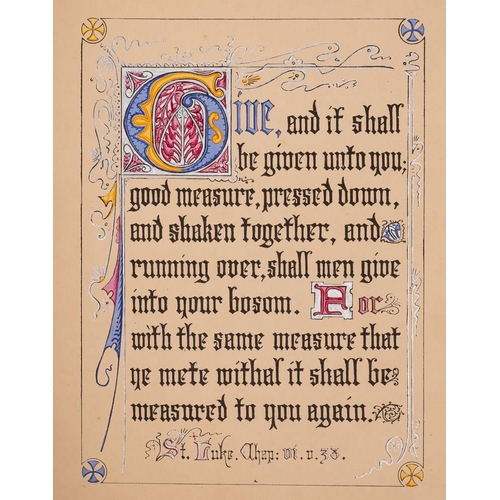 Give, and it shall
be given unto you;
good measure, pressed down,
and shaken together, and
running over, shall men give
into your bosom. For
with the same measure that
ye mete withal it shall be
measured to you again.
St. Luke. Chap: VI. v. 38.